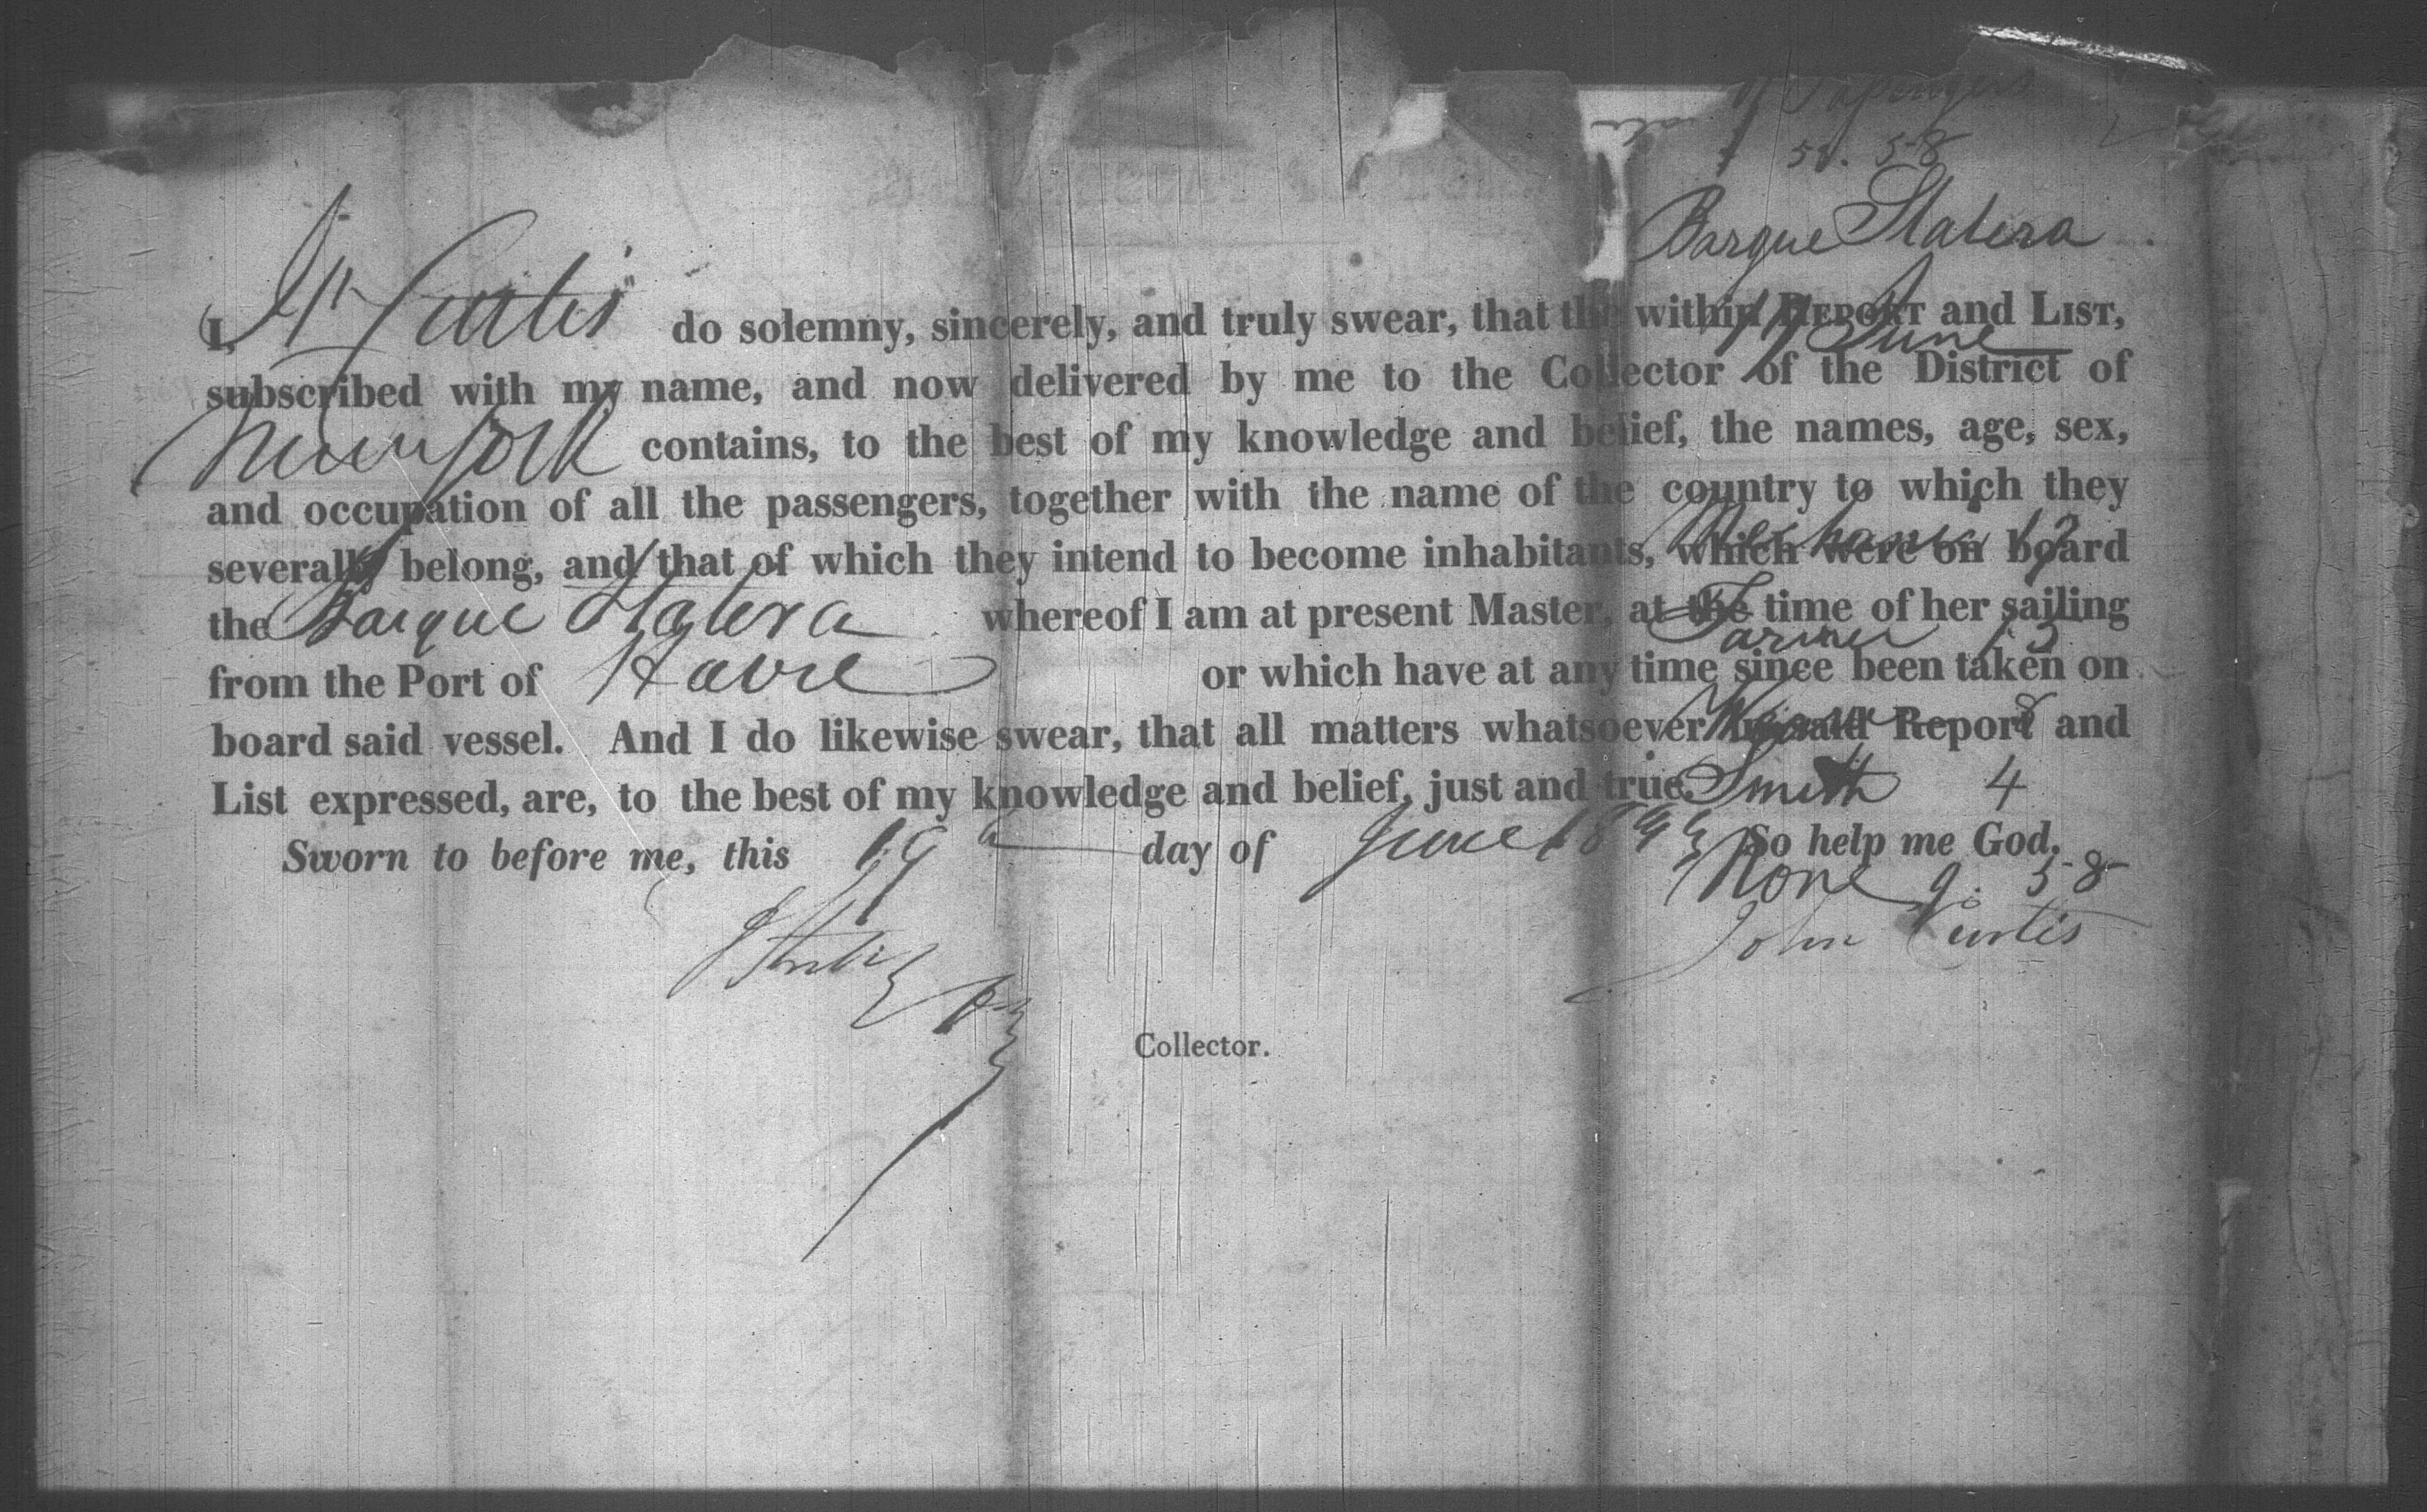 Passengers
58
Barque Statera
17 June
I, Jn Curtis do solemny, sincerely, and truly swear, that the within REPORT and LIST,
subscribed with my name, and now delivered by me to the Collector of the District of
New York contains, to the best of my knowledge and belief, the names, age, sex,
and occupation of all the passengers, together with the name of the country to which they
Mechanic 12
severally belong, and that of which they intend to become inhabitants, which were on board
the Barque Statera whereof I am at present Master, at the time of her sailing
Farmer 15
from the Port of Havre or which have at any time since been taken on
board said vessel. And I do likewise swear, that all matters whatsoever in said Report and
8
List expressed, are, to the best of my knowledge and belief, just and true.
Smith 4
Sworn to before me, this 19 day of June 18 So help me God.
None 9. 58
John Curtis
Collector.